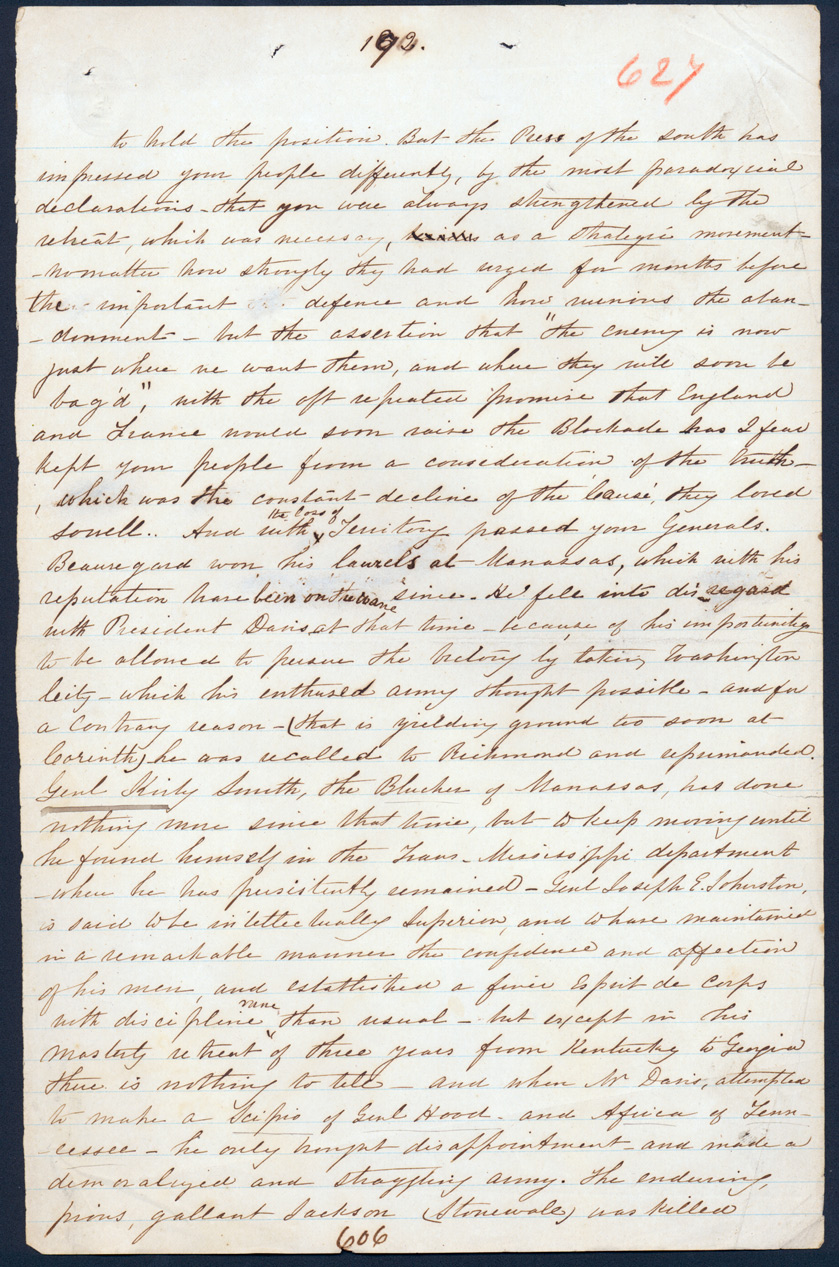 192.
627
to hold the position. But the Press of the south has
impressed your people differently, by the most paradoxical
declarations - that you were always strengthened by the
retreat, which was necessary, as a strategic movement -
- no matter how strongly they had urged for months before
the important defence and how ruinous the aban-
- donment - but the assertion that "the enemy is now
just where we want them, and where they will soon be
bag'd", with the oft repeated promise that England
and France would soon raise the Blockade has I fear
kept your people from a consideration of the truth -
, which was the constant decline of the 'Cause', they loved
sowell.. And with the loss of Territory passed your Generals.
Beauregard won his laurels at Manassas, which with his
reputation have been "on the wane" since. He fell into disregard
with President Davis at that time - because of his importunity
to be allowed to persue the victory by taking Washington
City - which his enthused army thought possible - and for
a contrary reason - (that is yielding ground too soon at
Corinth) he was recalled to Richmond and reprimanded.
Genl Kirby Smith, the Blucher of Manassas, has done
nothing more since that time, but to keep moving until
he found himself in the Trans-Mississippi department
- where he has persistently remained - Genl Joseph E. Johnston,
is said to be intellectually Superior, and to have maintained
in a remarkable manner the confidence and affection
of his men, and established a finer Esprit de Corps
with discipline more than usual - but except in his
masterly retreat of three years from Kentucky to Georgia
there is nothing to tell - and when Mr Davis, attempted
to make a Scipio of Genl Hood - and Africa of Tenn-
-essee - he only bought disappointment - and made a
demoralized and straggling army. The enduring,
pious, gallant Jackson (Stonewall) was killed
606